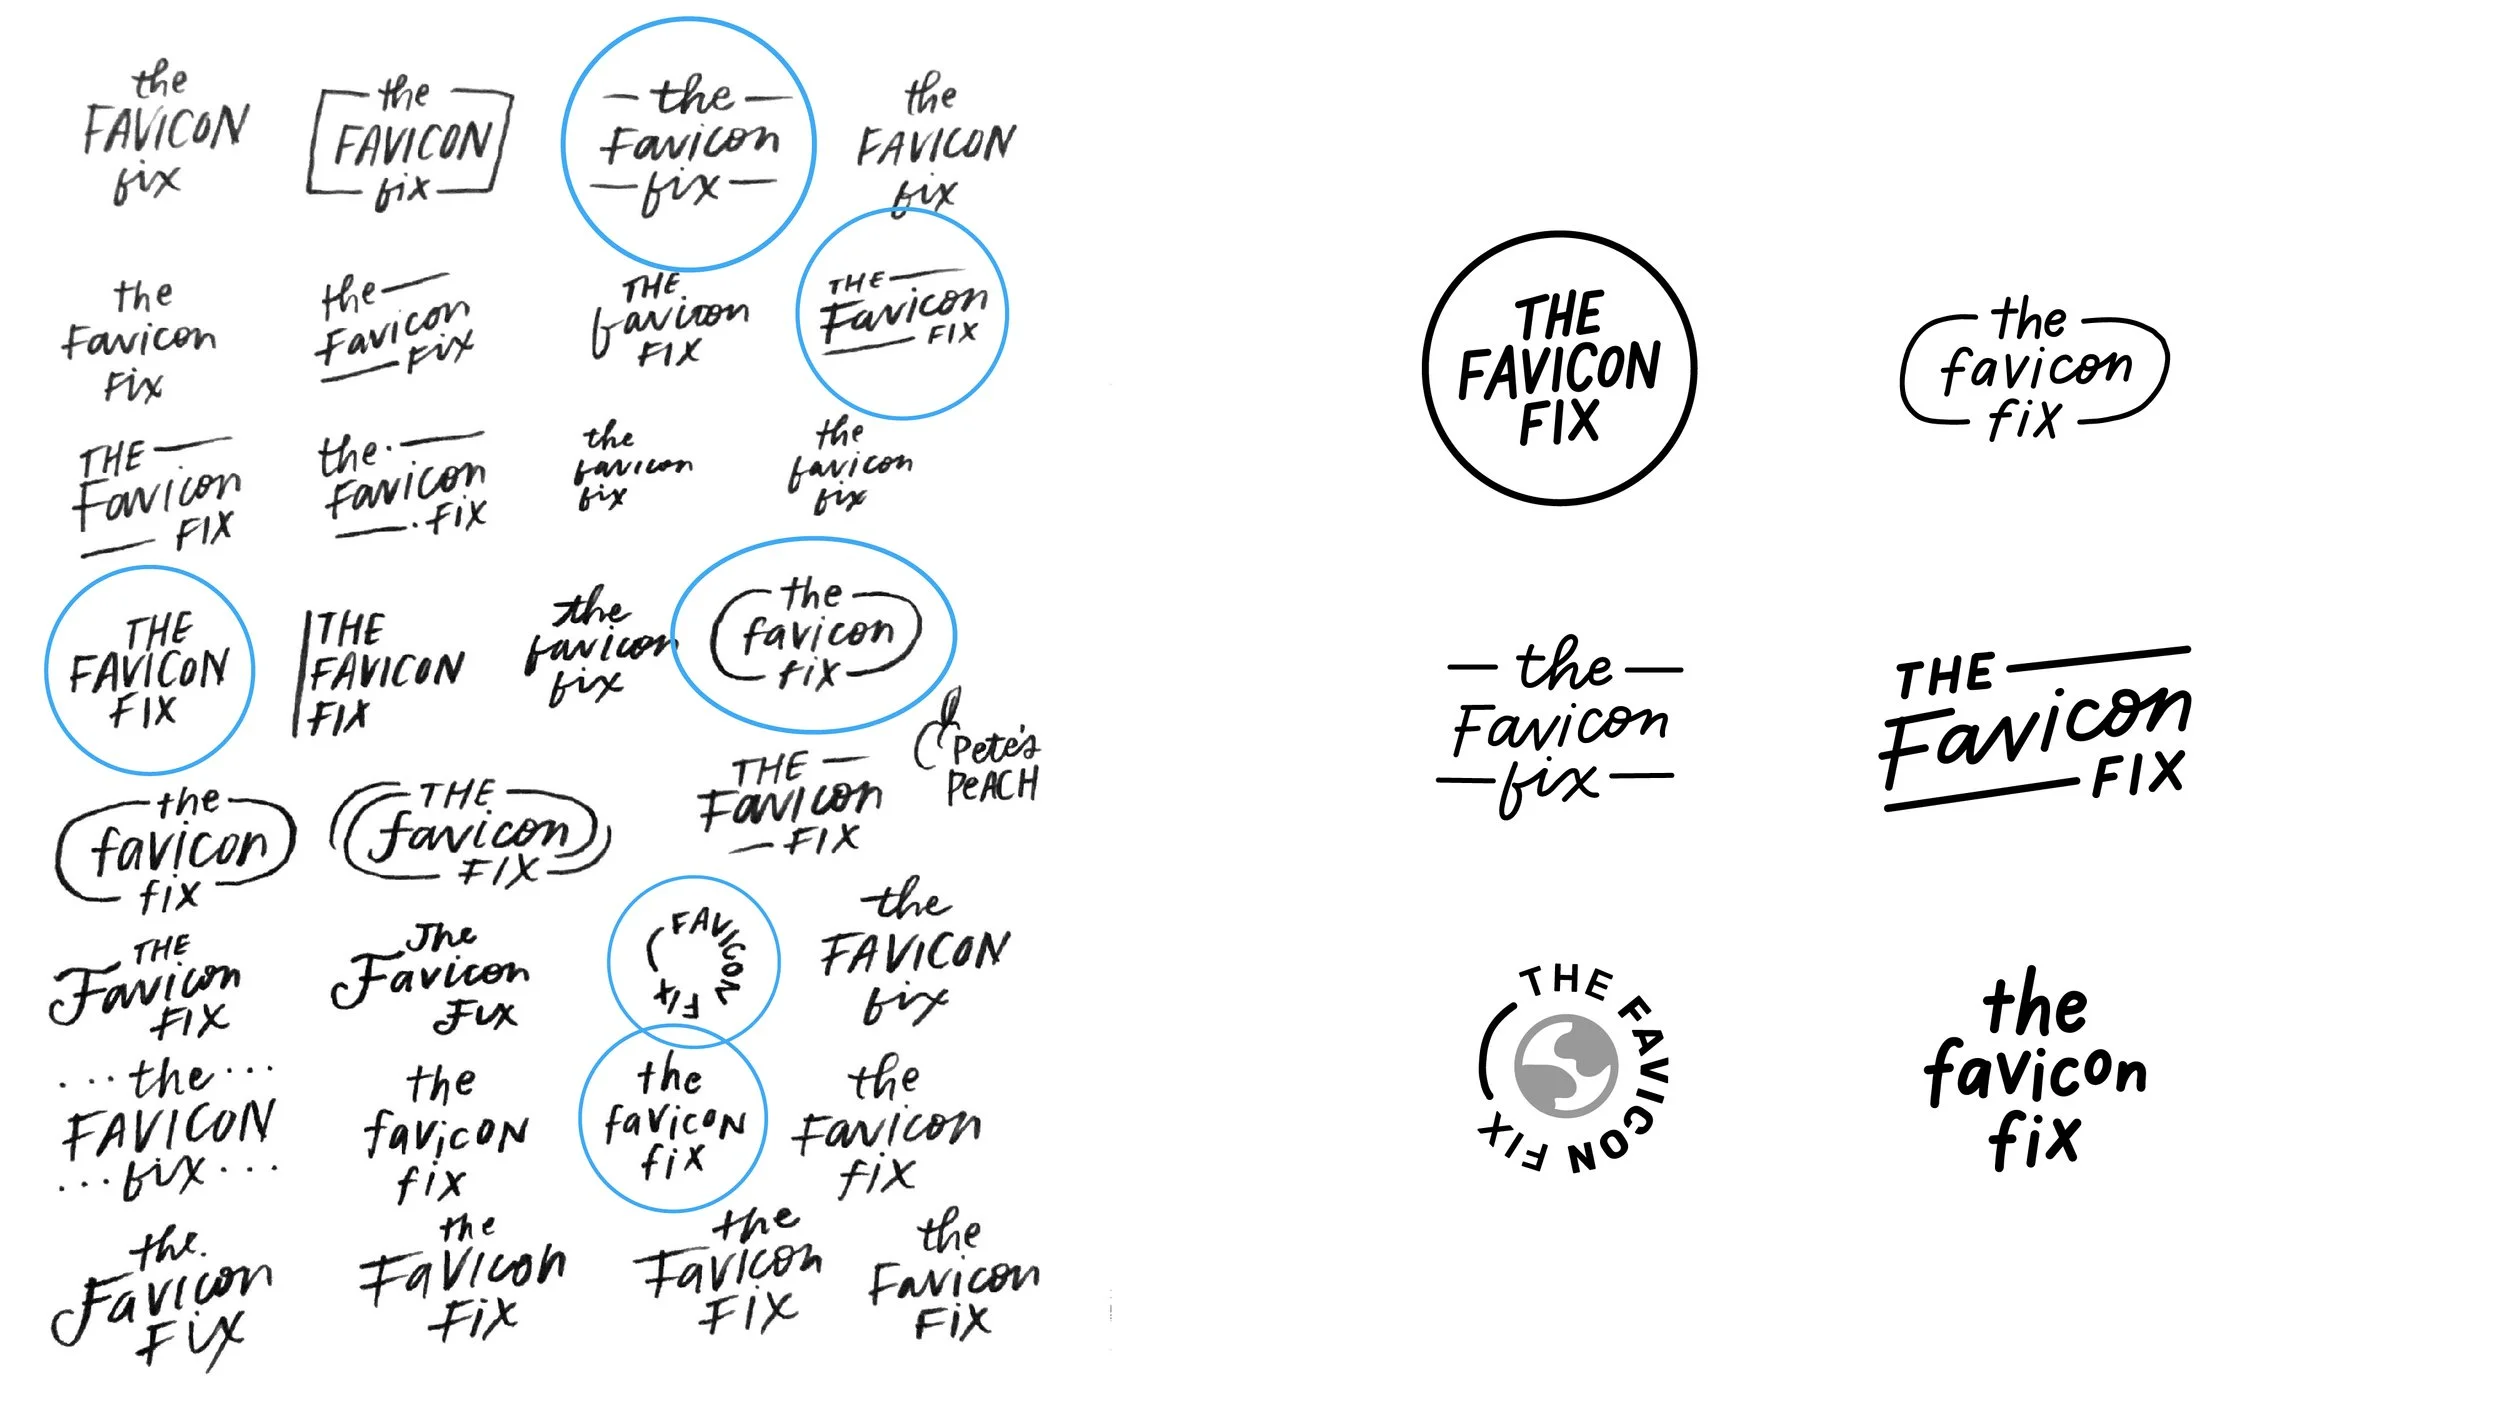 the
FAVICON
fix
the
FAVICON
fix
the
Favicon
fix
the
FAVICON
fix
the
Favicon
Fix
the
Favicon
Fix
THE
favicon
FIX
THE
Favicon
FIX
THE
Favicon
FIX
the.
Favicon
. FiX
the
favicon
fix
the
favicon
fix
THE
FAVICON
FIX
THE
FAVICON
FIX
the
favicon
fix
the
favicon
fix
Pete's
PeACH
the
favicon
fix
THE
favicon
FIX
THE
Favicon
FIX
THE
Favicon
FIX
The
Favicon
Fix
FAVICON
FIX
the
FAVICON
fix
... the ...
FAVICON
... fix ...
the
favicoN
fix
the
favicoN
fix
the
Favicon
fix
the.
Favicon
Fix
the
FaVicon
FiX
the
FaVicon
FIX
the
Favicon
FiX
THE
FAVICON
FIX
the
favicon
fix
the
Favicon
fix
THE
Favicon
FIX
THE FAVICON FIX
the
favicon
fix